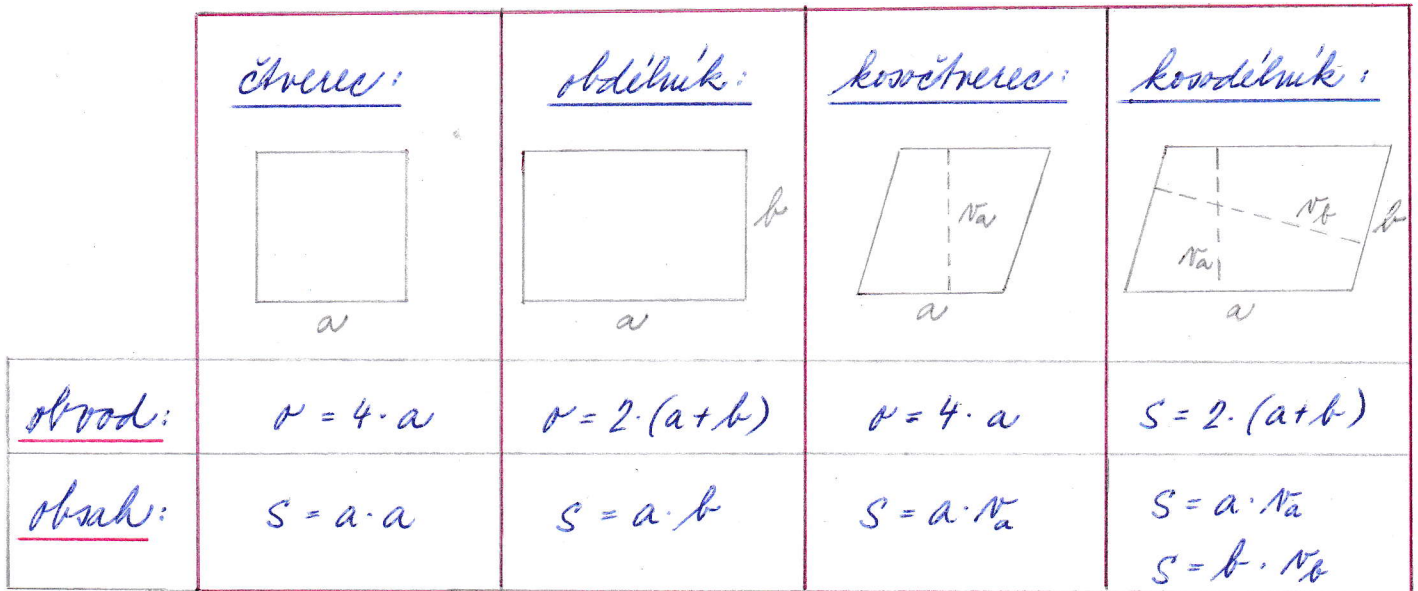 čtverec: obdélník: kosočtverec: kosodélník:
a
a b
a va
a b va vb
obvod: o = 4 · a o = 2 · (a + b) o = 4 · a S = 2 · (a + b)
obsah: S = a · a S = a · b S = a · va S = a · va
S = b · vb